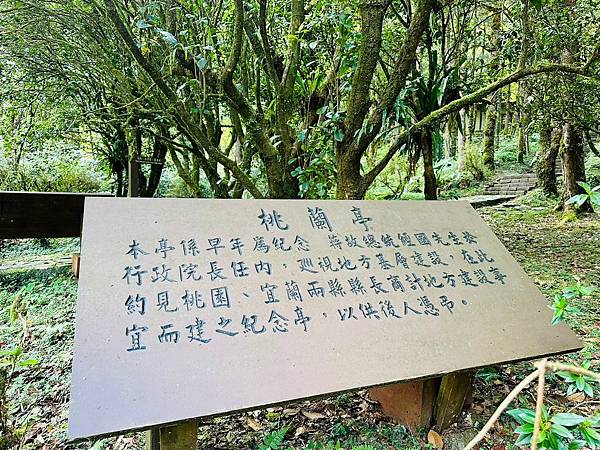 桃蘭亭
本亭係早年為紀念 蔣故總統經國先生於
行政院長任內，巡視地方基層建設，在此
約見桃園、宜蘭兩縣縣長商討地方建設事
宜而建之紀念亭，以供後人憑弔。